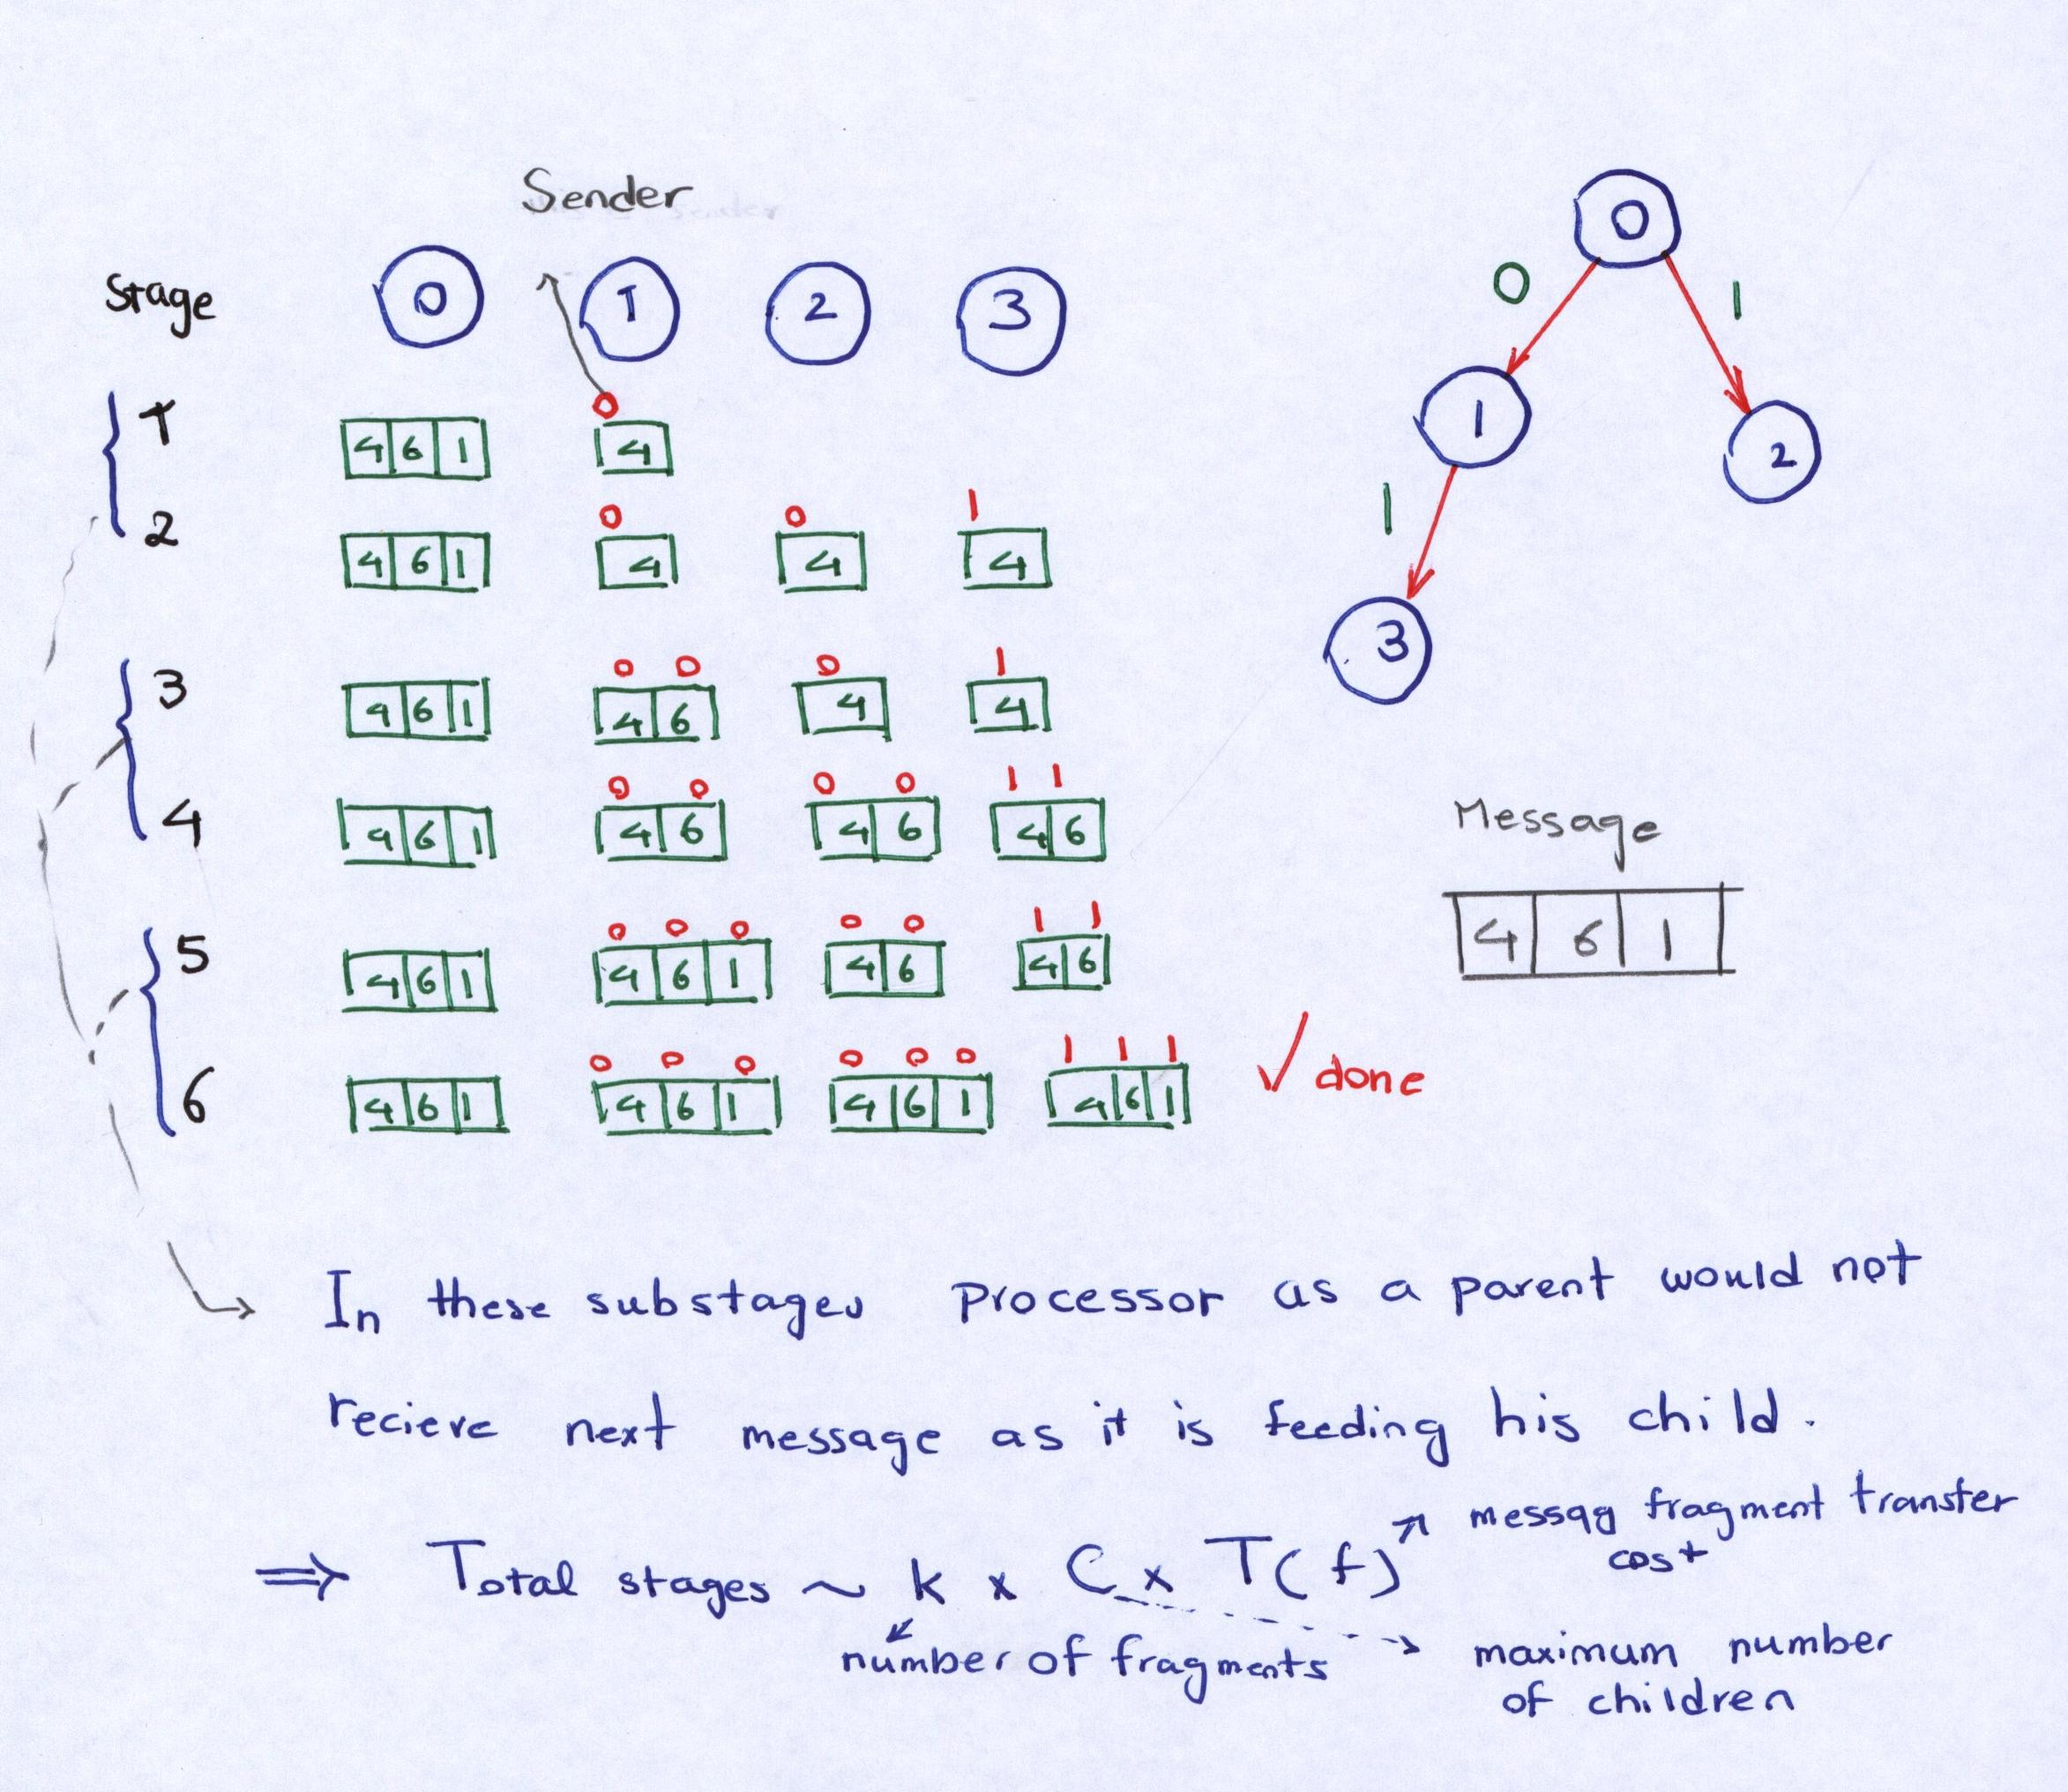 Sender
Stage 0 1 2 3
1
0
4 6 1 4
2
0 0 1
4 6 1 4 4 4
3
0 0 0 1
4 6 1 4 6 4 4
4
0 0 0 0 1 1
4 6 1 4 6 4 6 4 6
5
0 0 0 0 0 1 1
4 6 1 4 6 1 4 6 4 6
6
0 0 0 0 0 0 1 1 1
4 6 1 4 6 1 4 6 1 4 6 1
✓ done
0
0 1
1 2
1
3
Message
4 6 1
In these substages processor as a parent would not
recieve next message as it is feeding his child.
⇒ Total stages ~ k x C x T(f)
messag fragment transfer
cost
number of fragments
maximum number
of children